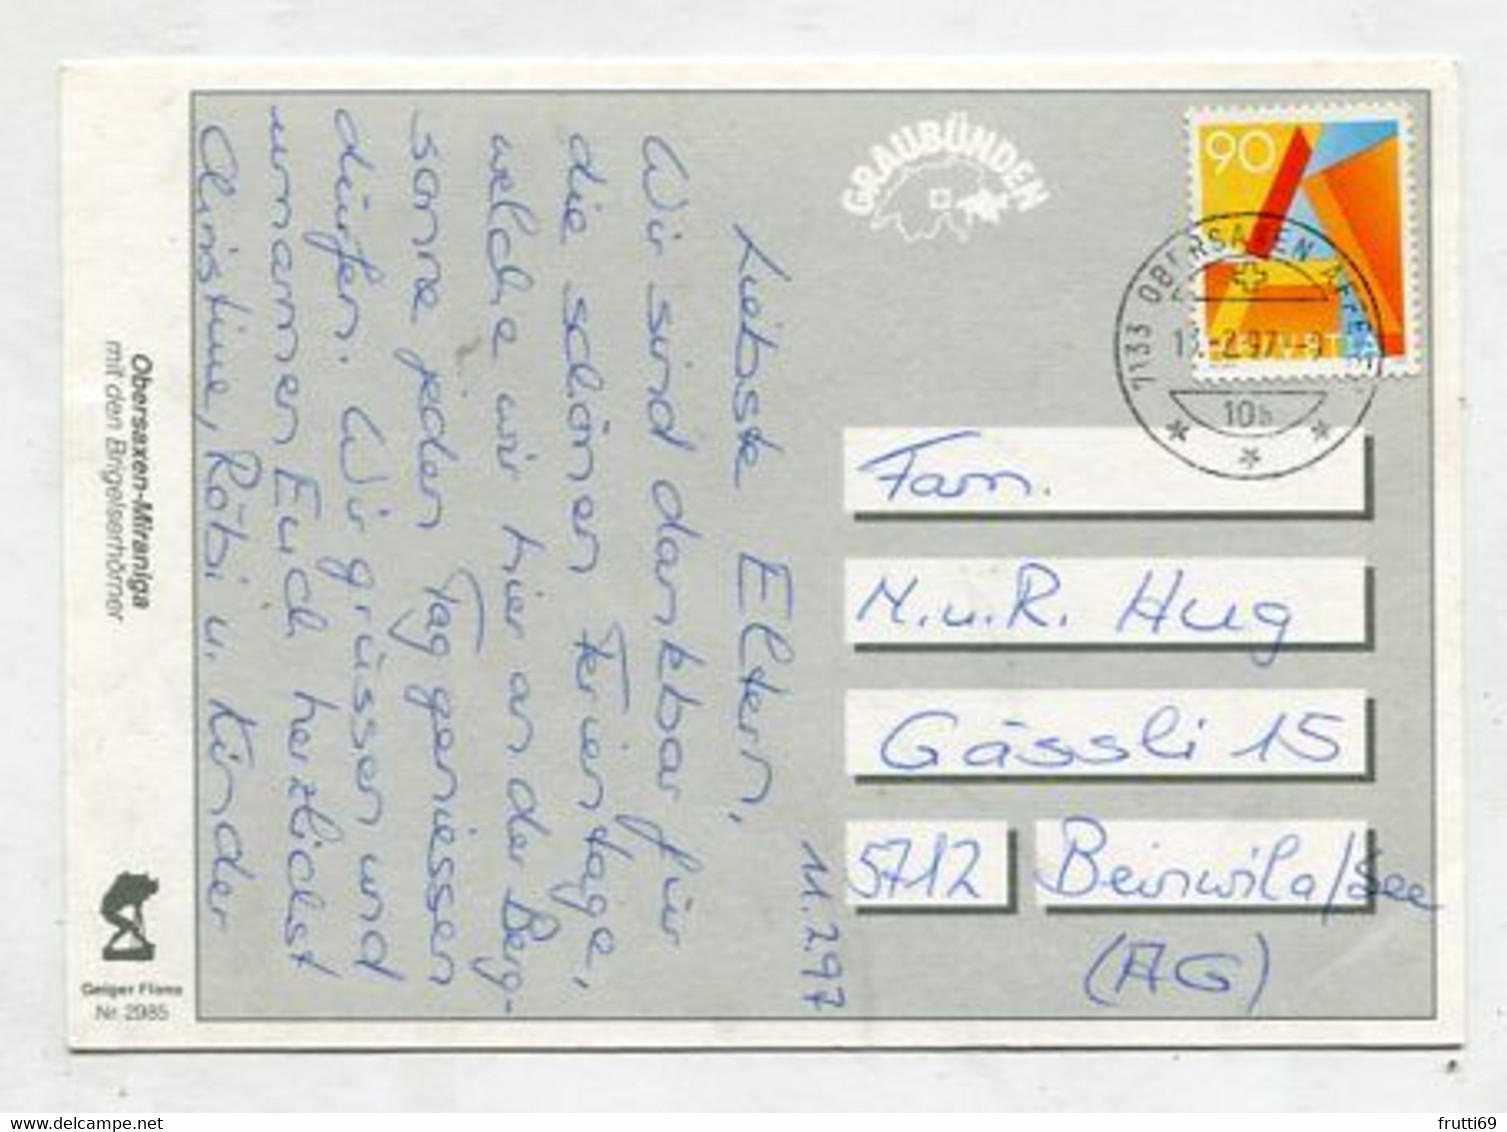 Obersaxen-Miraniga
mit den Brigelserhörner
Geiger Flims
Nr. 2985
11.2.97
Liebste Eltern,
Wir sind dankbar für
die schönen Ferientage,
welche wir hier an der Berg-
sonne jeden Tag geniessen
dürfen. Wir grüssen und
umarmen Euch herzlichst
Christine, Röbi u. Kinder
GRAUBÜNDEN
90
A
7133 OBERSAXEN AFFEIER
-2.97
10h
Fam.
M.u.R. Hug
Gässli 15
5712 Beinwil a/See
(AG)
delcampe.net
frutti69